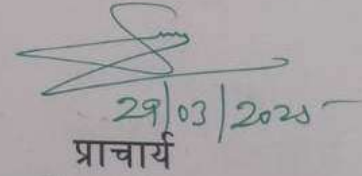 29/03/2025
प्राचार्य